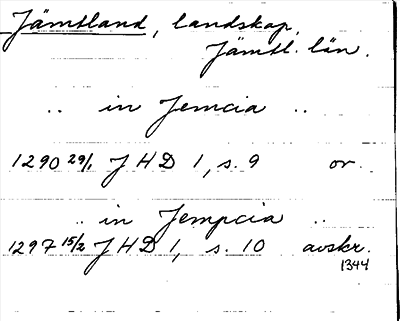 Jämtland, landskap,
Jämtl. län.
.. in Jemcia ..
1290 29/1 JHD 1, s. 9 or.
.. in Jempcia ..
1297 15/2 JHD 1, s. 10 avskr.
1344